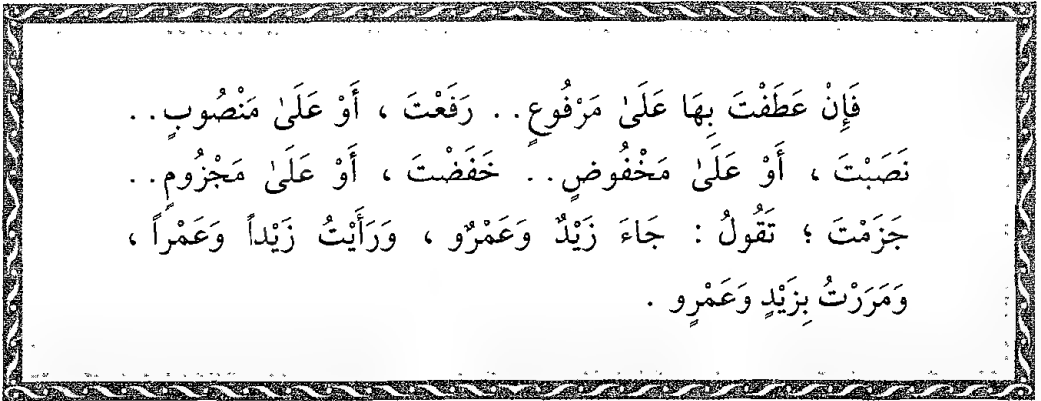 فَإِنْ عَطَفْتَ بِهَا عَلَىٰ مَرْفُوعٍ.. رَفَعْتَ ، أَوْ عَلَىٰ مَنْصُوبٍ..
نَصَبْتَ ، أَوْ عَلَىٰ مَخْفُوضٍ.. خَفَضْتَ ، أَوْ عَلَىٰ مَجْزُومٍ..
جَزَمْتَ ؛ تَقُولُ : جَاءَ زَيْدٌ وَعَمْرٌو ، وَرَأَيْتُ زَيْداً وَعَمْراً ،
وَمَرَرْتُ بِزَيْدٍ وَعَمْرٍو .